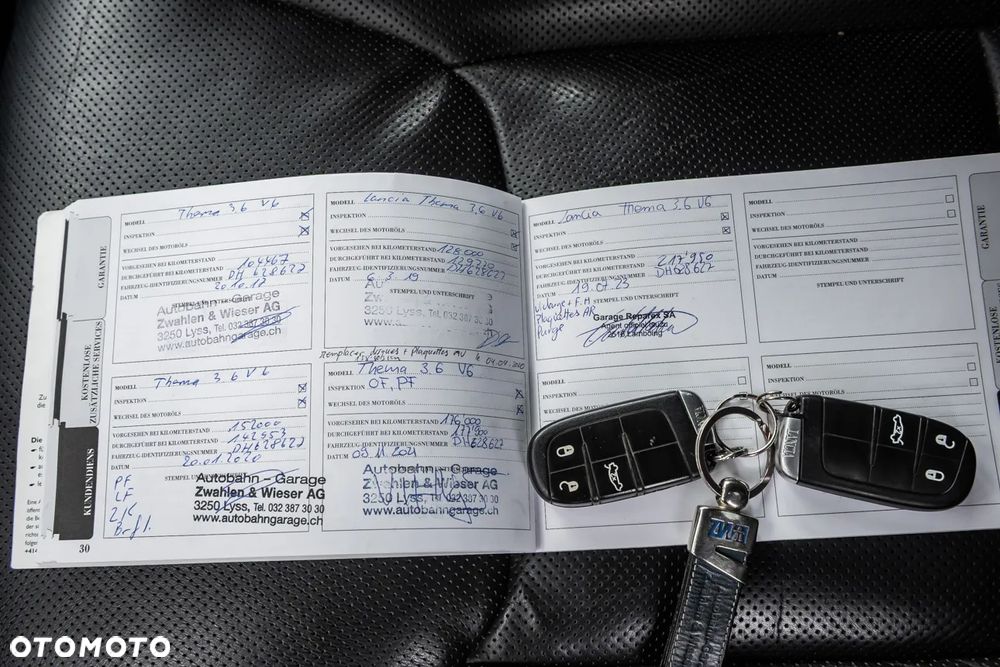 GARANTIE
KOSTENLOSE
ZUSÄTZLICHE SERVICES
KUNDENDIENS
30
MODELL Thema 3.6 V6
INSPEKTION
WECHSEL DES MOTORÖLS
VORGESEHEN BEI KILOMETERSTAND
DURCHGEFÜHRT BEI KILOMETERSTAND 104467
FAHRZEUG-IDENTIFIZIERUNGSNUMMER DH628622
DATUM 20.10.17
Autobahn – Garage
Zwahlen & Wieser AG
3250 Lyss, Tel. 032 387 30 30
www.autobahngarage.ch
MODELL Lancia Thema 3,6 V6
INSPEKTION
WECHSEL DES MOTORÖLS
VORGESEHEN BEI KILOMETERSTAND 128.000
DURCHGEFÜHRT BEI KILOMETERSTAND 129270
FAHRZEUG-IDENTIFIZIERUNGSNUMMER DH628622
DATUM 6.3.19
STEMPEL UND UNTERSCHRIFT
MODELL Thema 3.6 V6
INSPEKTION
WECHSEL DES MOTORÖLS
VORGESEHEN BEI KILOMETERSTAND 152000
DURCHGEFÜHRT BEI KILOMETERSTAND 142453
FAHRZEUG-IDENTIFIZIERUNGSNUMMER DH628622
DATUM 20.01.2020
PF
LF
Autobahn – Garage
Zwahlen & Wieser AG
3250 Lyss, Tel. 032 387 30 30
www.autobahngarage.ch
Remplacer disques + plaquettes AV
MODELL Thema 3.6 V6
INSPEKTION OF, PF
WECHSEL DES MOTORÖLS
VORGESEHEN BEI KILOMETERSTAND 176000
DURCHGEFÜHRT BEI KILOMETERSTAND
FAHRZEUG-IDENTIFIZIERUNGSNUMMER DH628622
DATUM 09.11.2021
Autobahn – Garage
Zwahlen & Wieser AG
3250 Lyss, Tel. 032 387 30 30
www.autobahngarage.ch
MODELL Lancia Thema 3.6 V6
INSPEKTION
WECHSEL DES MOTORÖLS
VORGESEHEN BEI KILOMETERSTAND
DURCHGEFÜHRT BEI KILOMETERSTAND 217'950
FAHRZEUG-IDENTIFIZIERUNGSNUMMER DH628622
DATUM 19.07.23
STEMPEL UND UNTERSCHRIFT
Vidange + F.H
Plaquettes AR
Purge
Garage Reparex SA
Agent officiel
MODELL
INSPEKTION
WECHSEL DES MOTORÖLS
VORGESEHEN BEI KILOMETERSTAND
DURCHGEFÜHRT BEI KILOMETERSTAND
FAHRZEUG-IDENTIFIZIERUNGSNUMMER
DATUM
STEMPEL UND UNTERSCHRIFT
MODELL
INSPEKTION
WECHSEL DES
MODELL
INSPEKTION
DES MOTORÖLS
KILOMETERSTAND
GARANTIE
OTOMOTO